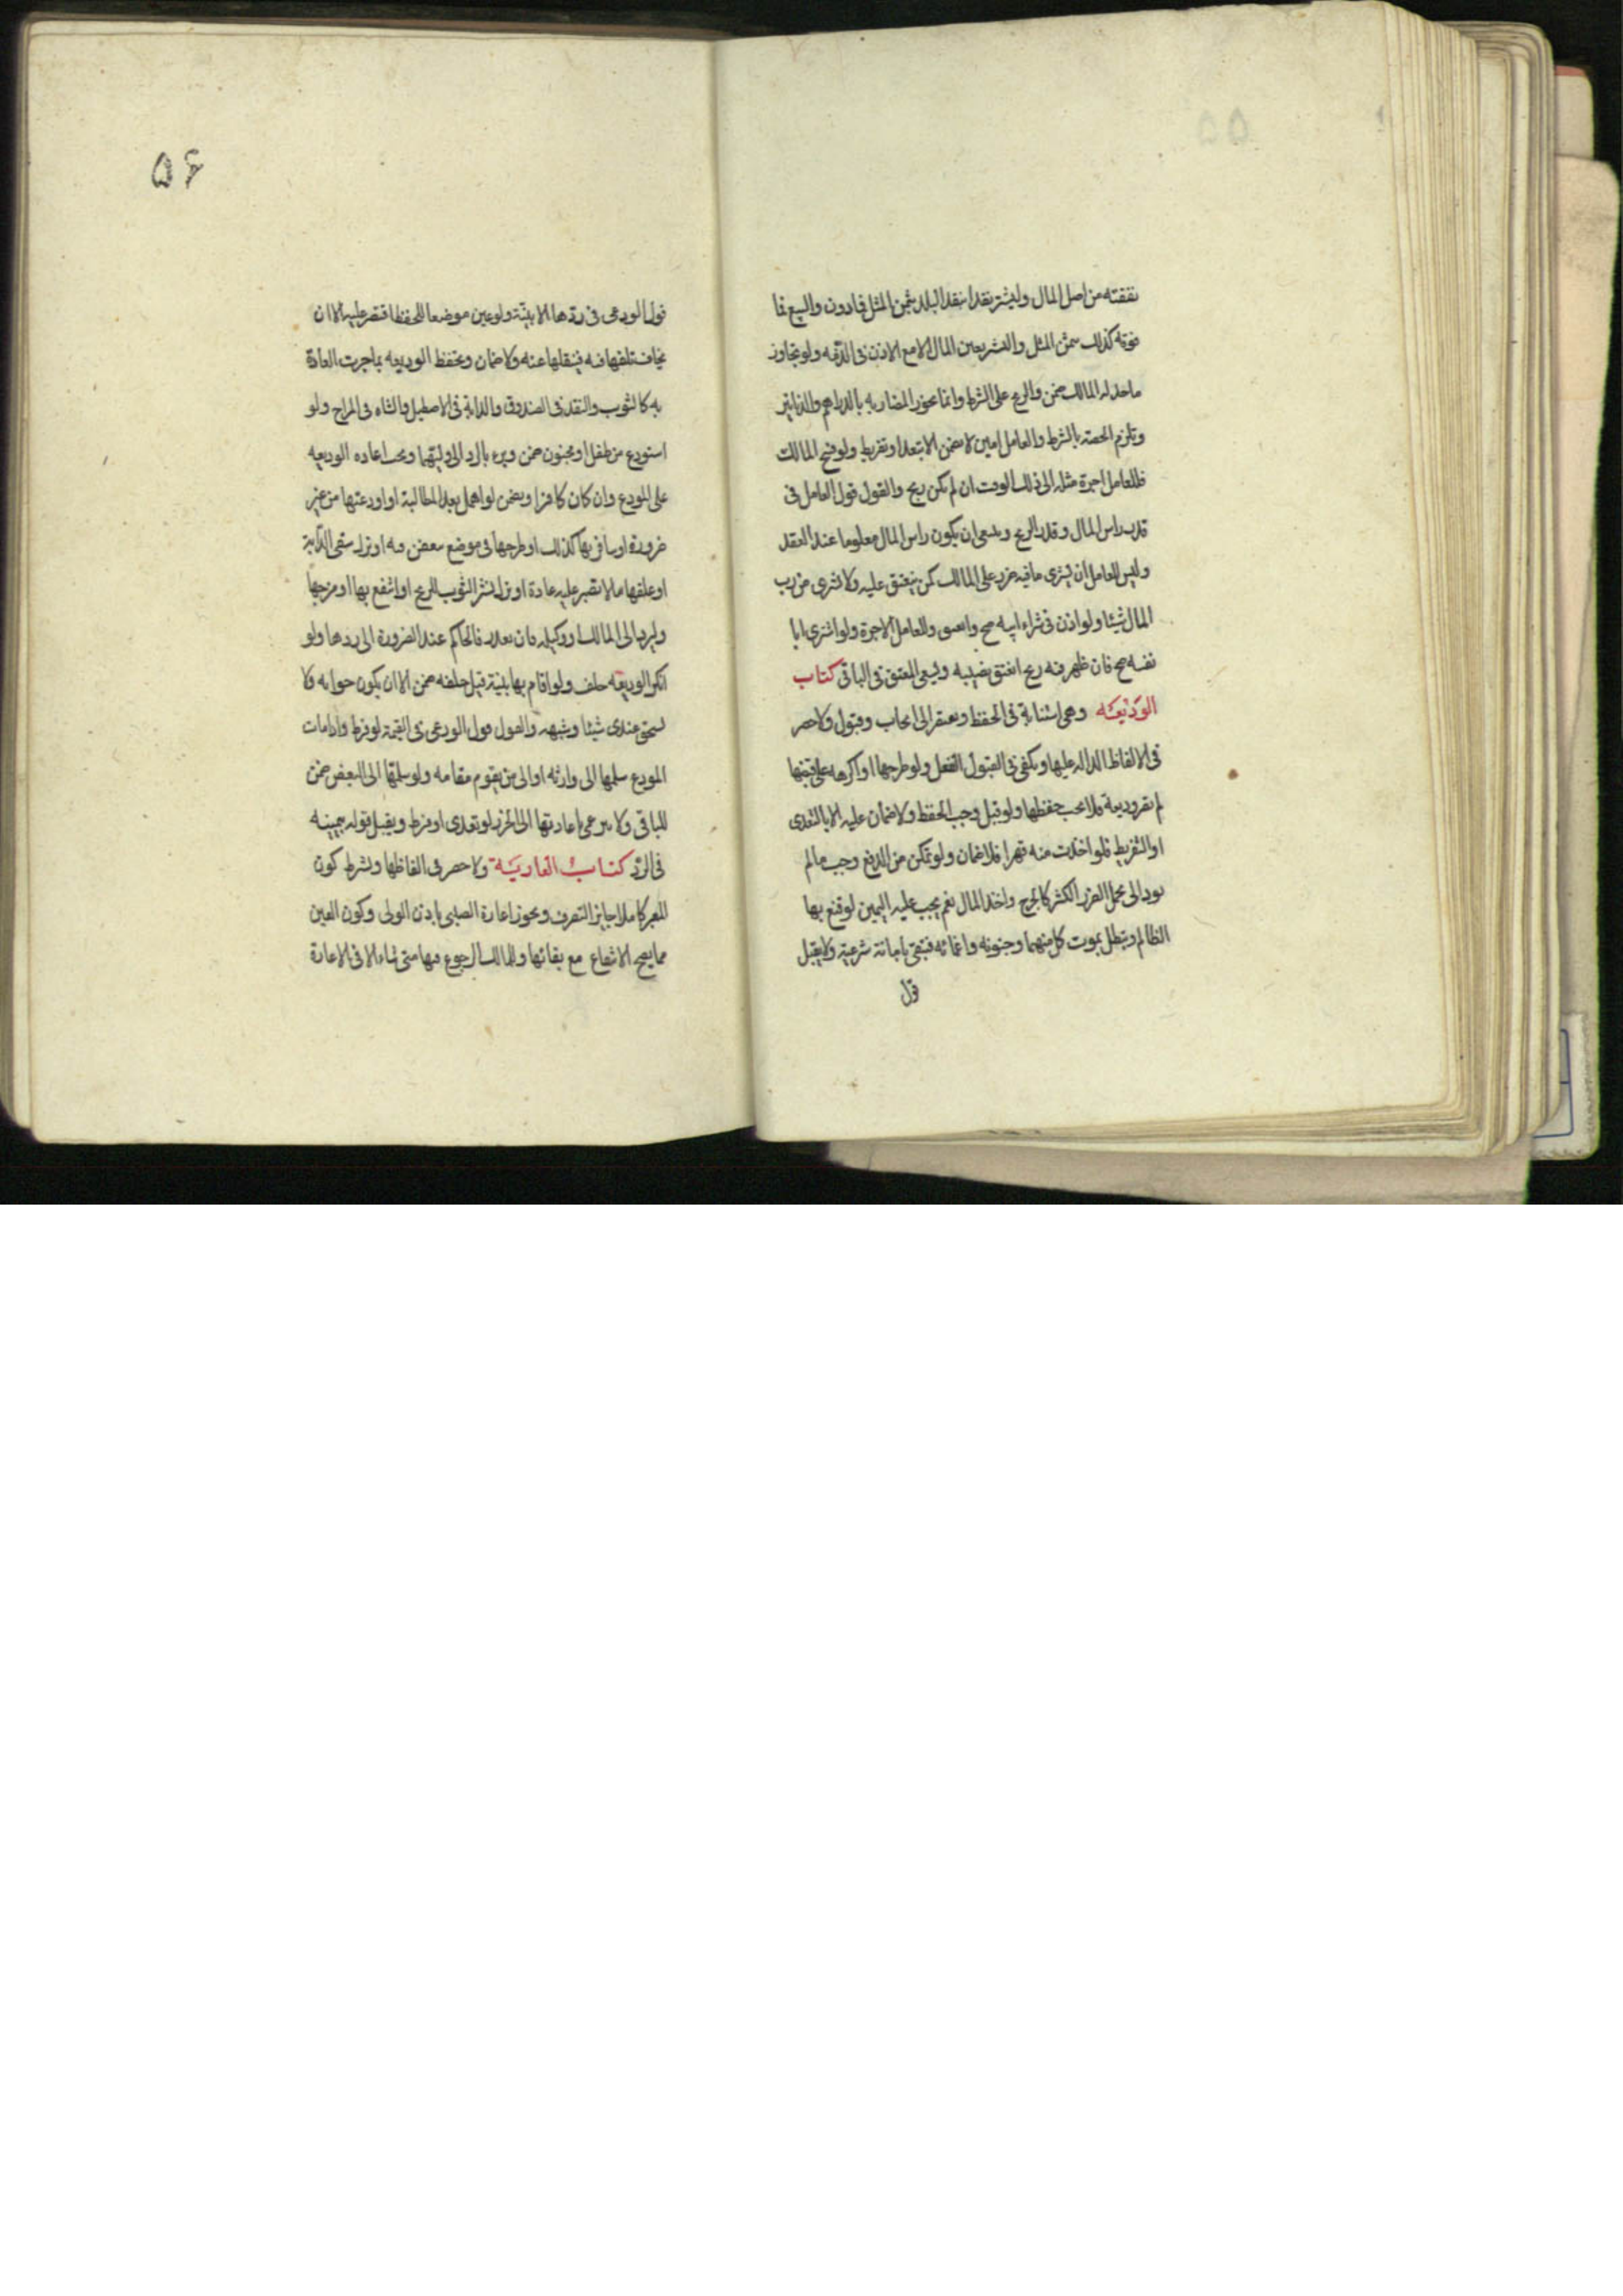 ۵۵
نفقته من اصل المال وليشتر نقدا بنقد البلد بثمن المثل فما دون والبيع بما
فوقه كذلك بثمن المثل واليشتر بعين المال الا مع الاذن فى الذمه ولو تجاوز
ما حد له المالك ضمن والربح على الشرط وانما تجوز المضاربه بالدراهم والدنانير
وتلزم الحصة بالشرط والعامل امين لا يضمن الا بتعد او تفريط ولو فسخ المالك
فللعامل اجرة مثله الى ذلك الوقت ان لم يكن ربح والقول قول العامل فى
قدر راس المال وقدر الربح وينبغى ان يكون راس المال معلوما عند العقد
وليس للعامل ان يشترى ما فيه ضرر على المالك كمن ينعتق عليه ولا يشترى من رب
المال شيئا ولو اذن فى شراء ابيه صح وانعتق وللعامل الاجرة ولو اشترى ابا
نفسه صح فان ظهر فيه ربح انعتق نصيبه ويسعى المعتق فى الباقى كتاب
الوديعه وهى استنابة فى الحفظ وتفتقر الى ايجاب وقبول ولا حصر
فى الالفاظ الداله عليها ويكفى فى القبول الفعل ولو طرحها او اكرهه على قبضها
لم تصر وديعة فلا يجب حفظها ولو قبل وجب الحفظ ولا ضمان عليه الا بالتعدى
او التفريط فلو اخذت منه قهرا فلا ضمان ولو تمكن من الدفع وجب ما لم
يود الى تحمل الضرر الكثير كالجرح واخذ المال نعم يجب عليه اليمين لو قنع بها
الظالم وتبطل بموت كل منهما وجنونه واغمائه فتبقى امانة شرعية ولا يقبل
قول
۵۶
قول الودعى فى ردها الا ببينة ولو عين موضعا للحفظ اقتصر عليه الا ان
يخاف تلفها فيه فينقلها عنه ولا ضمان وتحفظ الوديعه بما جرت العادة
به كالثوب والنقد فى الصندوق والدابة فى الاصطبل والشاه فى المراح ولو
استودع من طفل او مجنون ضمن ويبرء بالرد الى وليهما وتجب اعاده الوديعه
على المودع وان كان كافرا ويضمن لو اهمل بعد المطالبة او اودعها من غير
ضرورة او سافر بها كذلك او طرحها فى موضع تتعفن فيه او ترك سقى الدابة
او علفها ما لا تصبر عليه عادة او ترك نشر الثوب للريح او انتفع بها او مزجها
وليرد الى المالك او وكيله فان تعذر فالحاكم عند الضرورة الى ردها ولو
انكر الوديعه حلف ولو اقام بها بينة قبل حلفه ضمن الا ان يكون جوابه لا
تستحق عندى شيئا وشبهه والقول قول الودعى فى القيمة لو فرط واذا مات
المودع سلمها الى وارثه او الى من يقوم مقامه ولو سلمها الى البعض ضمن
للباقى ولا يبرء باعادتها الى الحرز لو تعدى او فرط ويقبل قوله بيمينه
فى الرد كتاب العارية ولا حصر فى الفاظها ويشترط كون
المعير كاملا جايز التصرف وتجوز اعارة الصبى باذن الولى وكون العين
مما يصح الانتفاع مع بقائها وللمالك الرجوع فيها متى شاء الا فى الاعارة